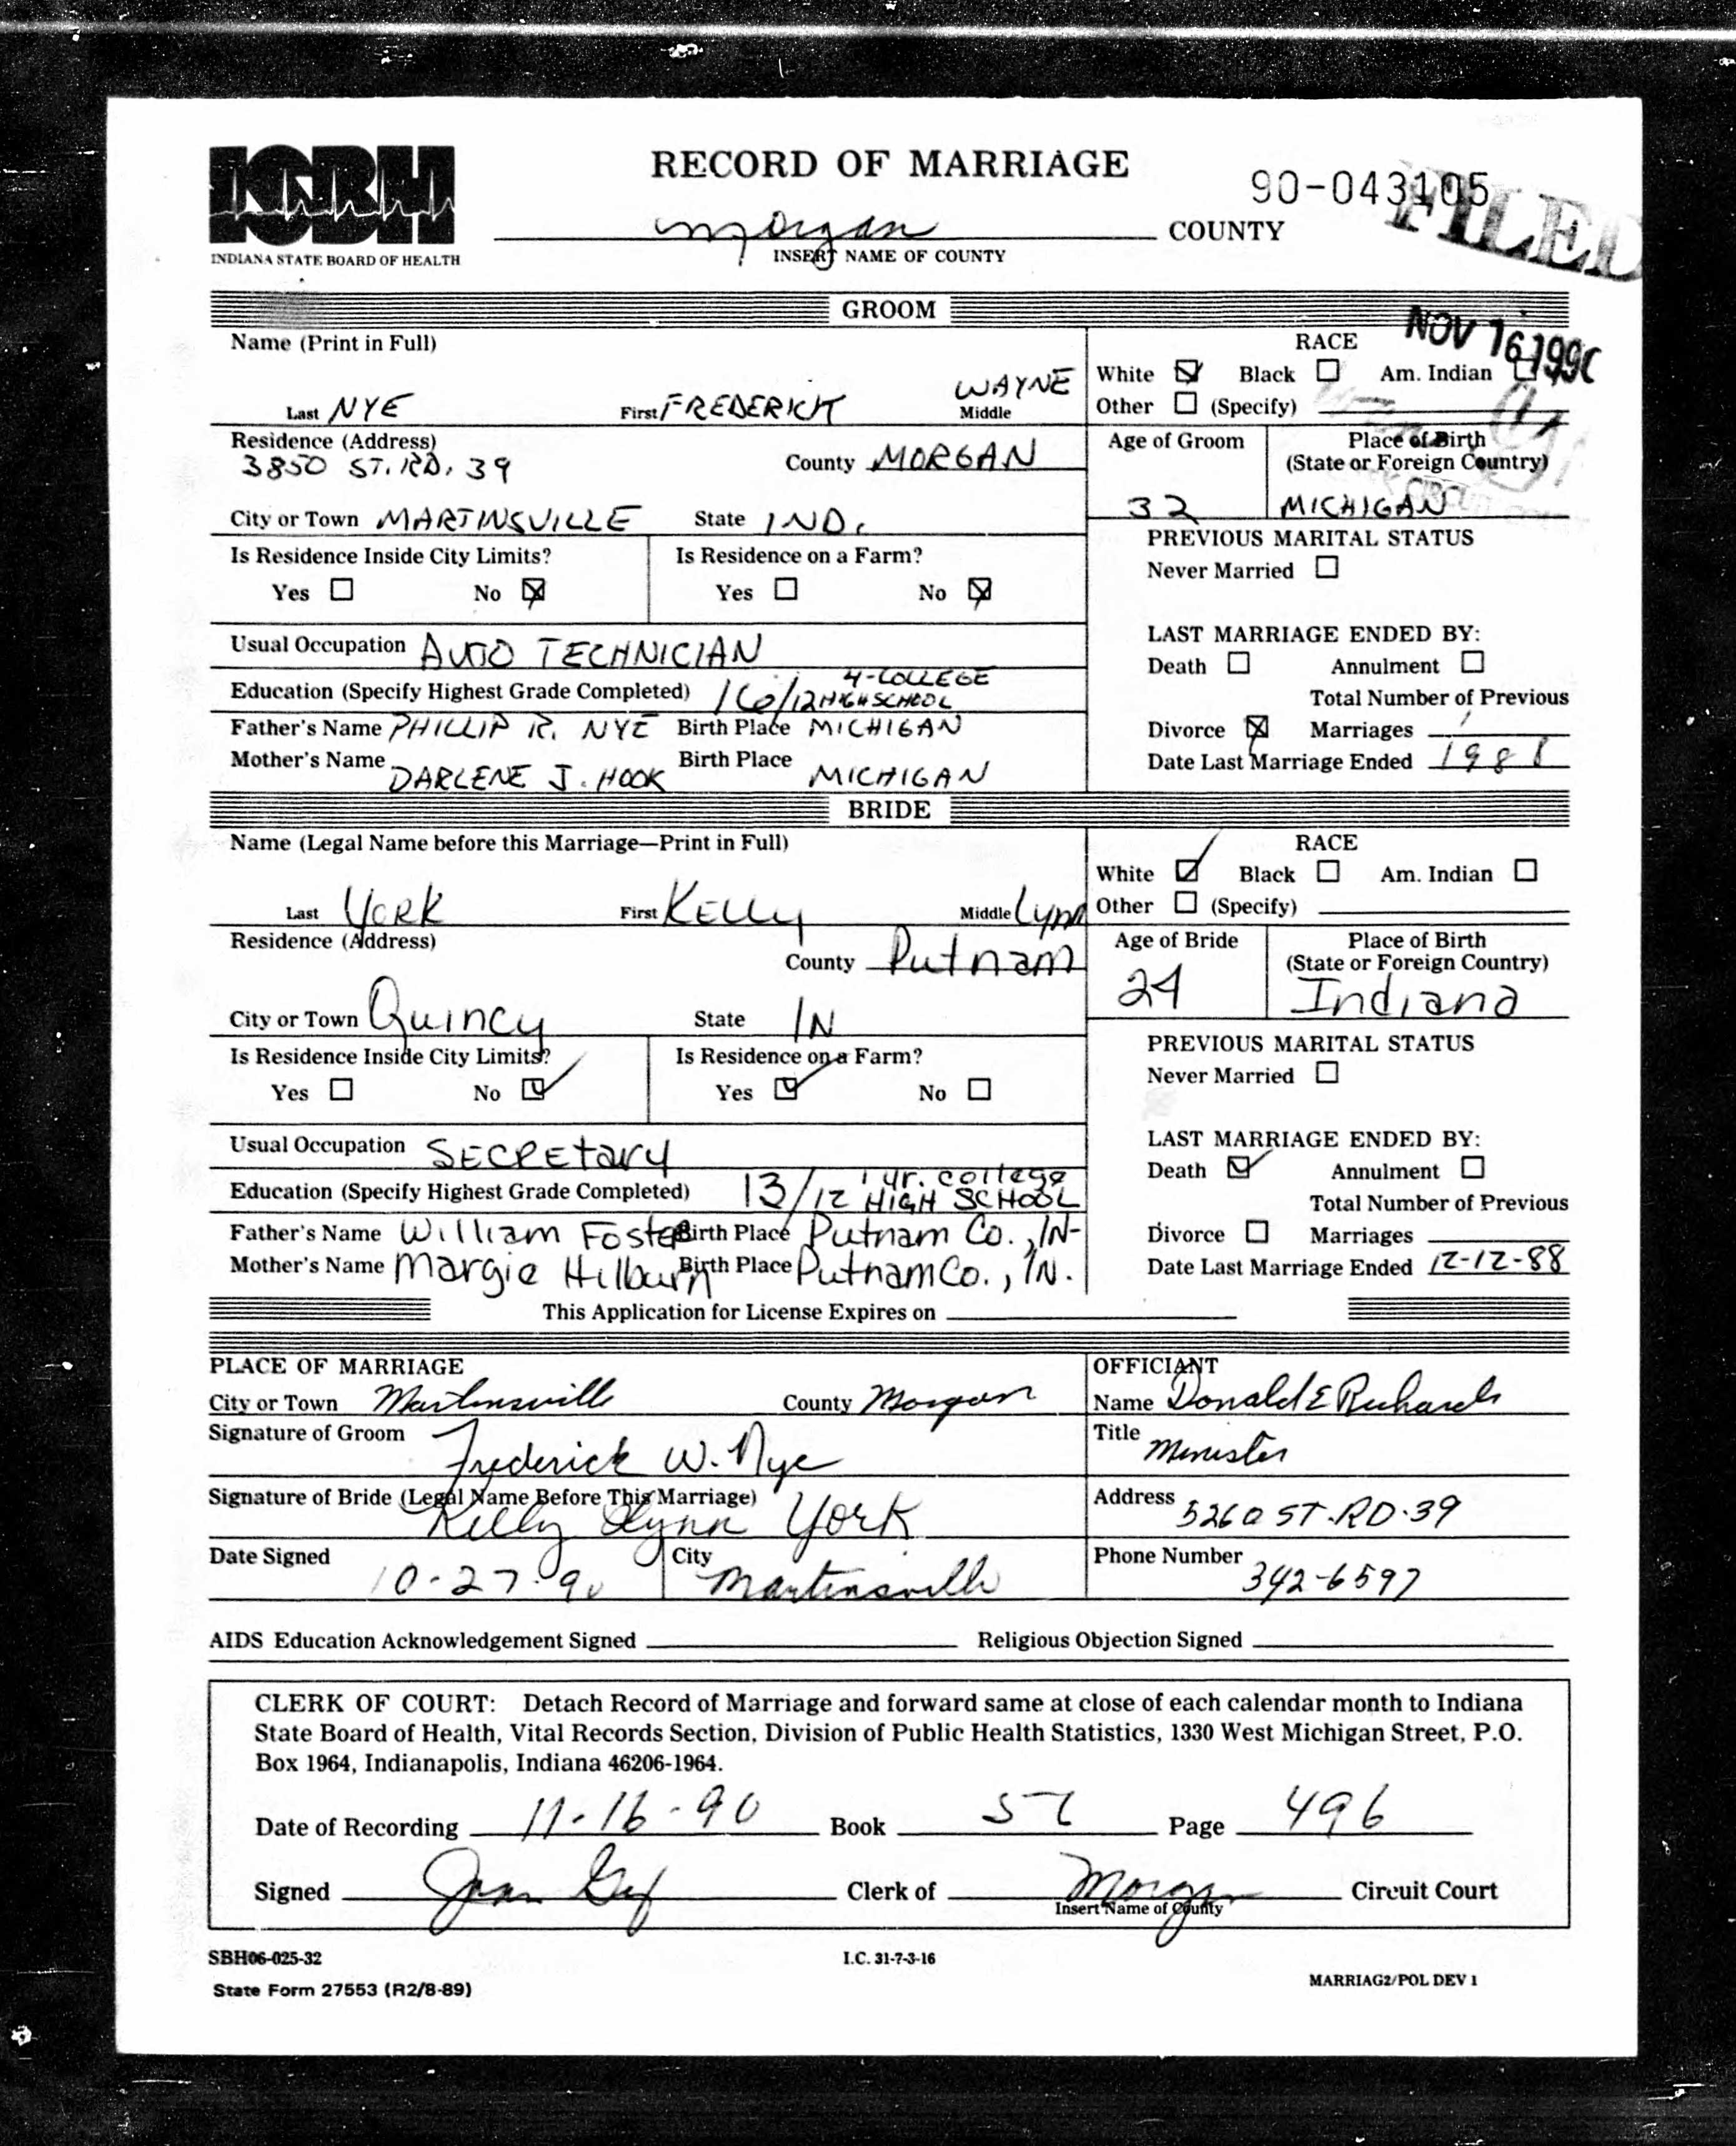 ISBH
RECORD OF MARRIAGE
90-043105
FILED
morgan COUNTY
INSERT NAME OF COUNTY
INDIANA STATE BOARD OF HEALTH
GROOM
NOV 16 1990
Name (Print in Full)
Last NYE First FREDERICK WAYNE Middle
RACE
White ☒ Black ☐ Am. Indian ☐
Other ☐ (Specify)
Residence (Address)
3850 ST. RD. 39 County MORGAN
City or Town MARTINSVILLE State IND.
Age of Groom
32
Place of Birth
(State or Foreign Country)
MICHIGAN
Is Residence Inside City Limits?
Yes ☐ No ☒
Is Residence on a Farm?
Yes ☐ No ☒
PREVIOUS MARITAL STATUS
Never Married ☐
Usual Occupation AUTO TECHNICIAN
Education (Specify Highest Grade Completed) 16/12 HIGH SCHOOL 4-COLLEGE
Father's Name PHILLIP R. NYE Birth Place MICHIGAN
Mother's Name DARLENE J. HOOK Birth Place MICHIGAN
LAST MARRIAGE ENDED BY:
Death ☐ Annulment ☐
Total Number of Previous
Divorce ☒ Marriages 1
Date Last Marriage Ended 1988
BRIDE
Name (Legal Name before this Marriage—Print in Full)
Last YORK First KELLY Middle Lynn
RACE
White ☑ Black ☐ Am. Indian ☐
Other ☐ (Specify)
Residence (Address)
County Putnam
City or Town Quincy State IN
Age of Bride
24
Place of Birth
(State or Foreign Country)
Indiana
Is Residence Inside City Limits?
Yes ☐ No ☑
Is Residence on a Farm?
Yes ☑ No ☐
PREVIOUS MARITAL STATUS
Never Married ☐
Usual Occupation SECRETARY
Education (Specify Highest Grade Completed) 13/12 HIGH SCHOOL 1 yr. college
Father's Name William Foster Birth Place Putnam Co., IN-
Mother's Name Margie Hilburn Birth Place Putnam Co., IN.
LAST MARRIAGE ENDED BY:
Death ☑ Annulment ☐
Total Number of Previous
Divorce ☐ Marriages
Date Last Marriage Ended 12-12-88
This Application for License Expires on
PLACE OF MARRIAGE
City or Town Martinsville County Morgan
Signature of Groom Frederick W. Nye
Signature of Bride (Legal Name Before This Marriage) Kelly Lynn York
Date Signed 10-27-90 City Martinsville
OFFICIANT
Name Donald E Richards
Title Minister
Address 5260 ST. RD. 39
Phone Number 342-6597
AIDS Education Acknowledgement Signed Religious Objection Signed
CLERK OF COURT: Detach Record of Marriage and forward same at close of each calendar month to Indiana
State Board of Health, Vital Records Section, Division of Public Health Statistics, 1330 West Michigan Street, P.O.
Box 1964, Indianapolis, Indiana 46206-1964.
Date of Recording 11-16-90 Book Page 496
Signed Clerk of Morgan Circuit Court
Insert Name of County
SBH06-025-32
I.C. 31-7-3-16
State Form 27553 (R2/8-89)
MARRIAG2/POL DEV 1